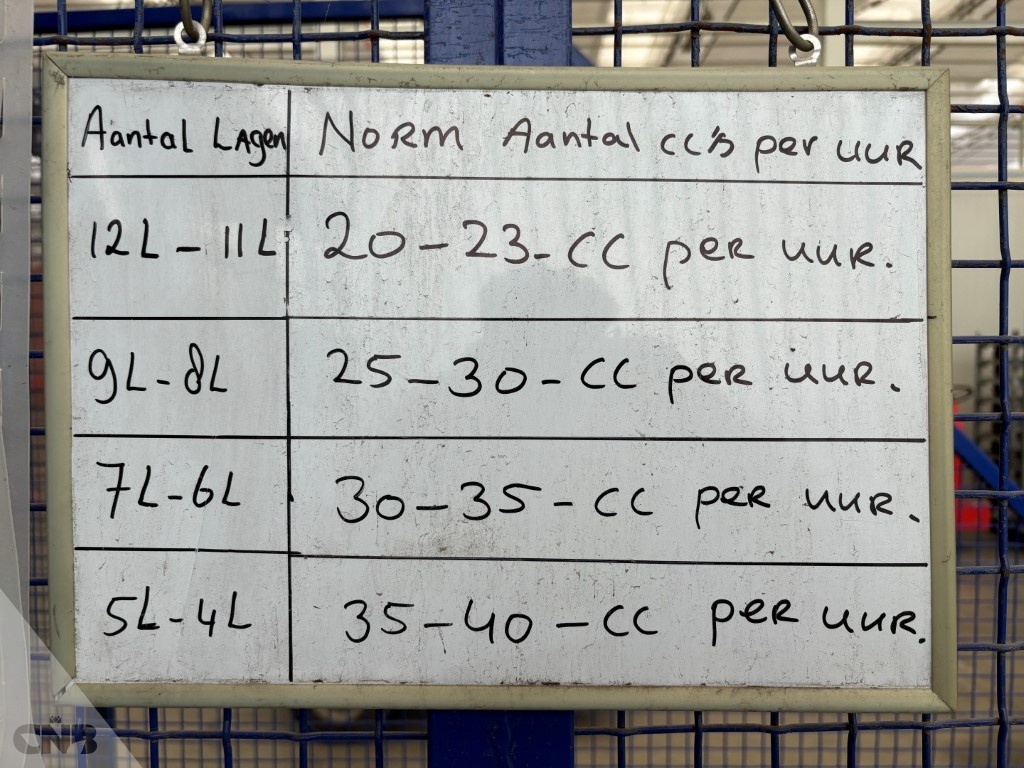 Aantal Lagen Norm Aantal cc's per uur
12L - 11L 20 - 23 - CC per uur.
9L - 8L 25 - 30 - CC per uur.
7L - 6L 30 - 35 - CC per uur.
5L - 4L 35 - 40 - CC per uur.
CNB